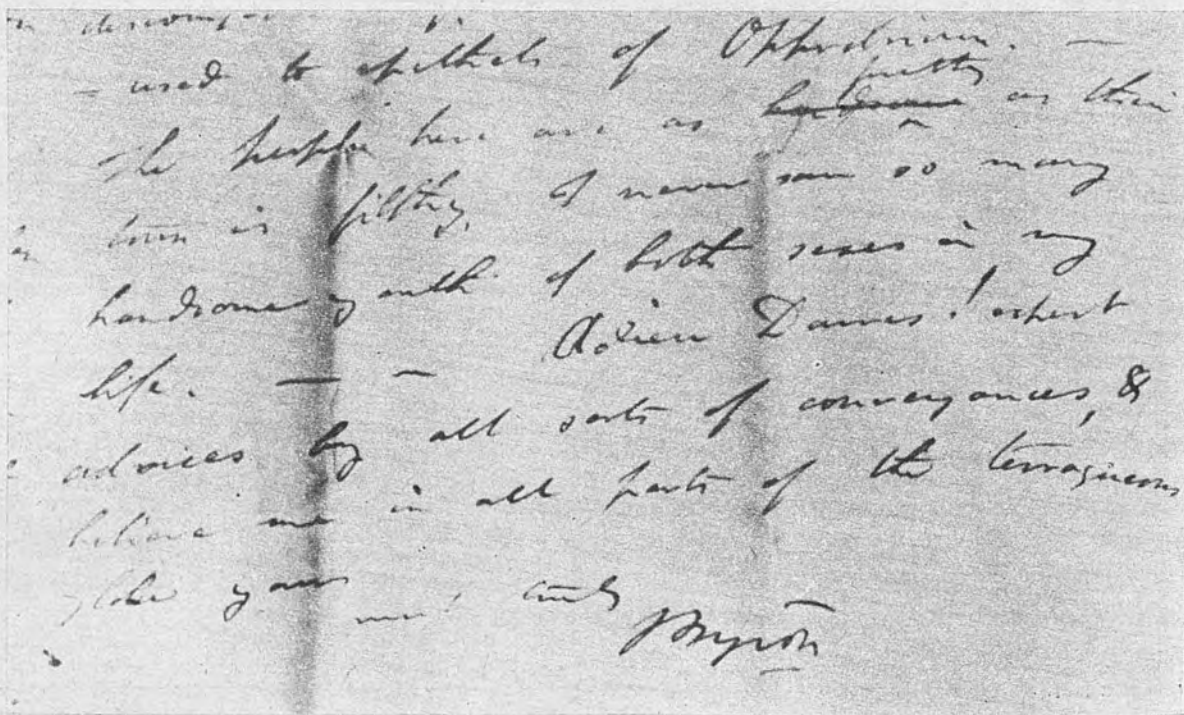 – used to epithets of Opprobrium. –
The people here are as pretty as their
town is filthy, I never saw so many
handsome youth of both sexes in my
life. — – Adieu Davies! expect
advices by all sorts of conveyances, &
believe me in all parts of the terraqueous
globe yours most truly
Byron